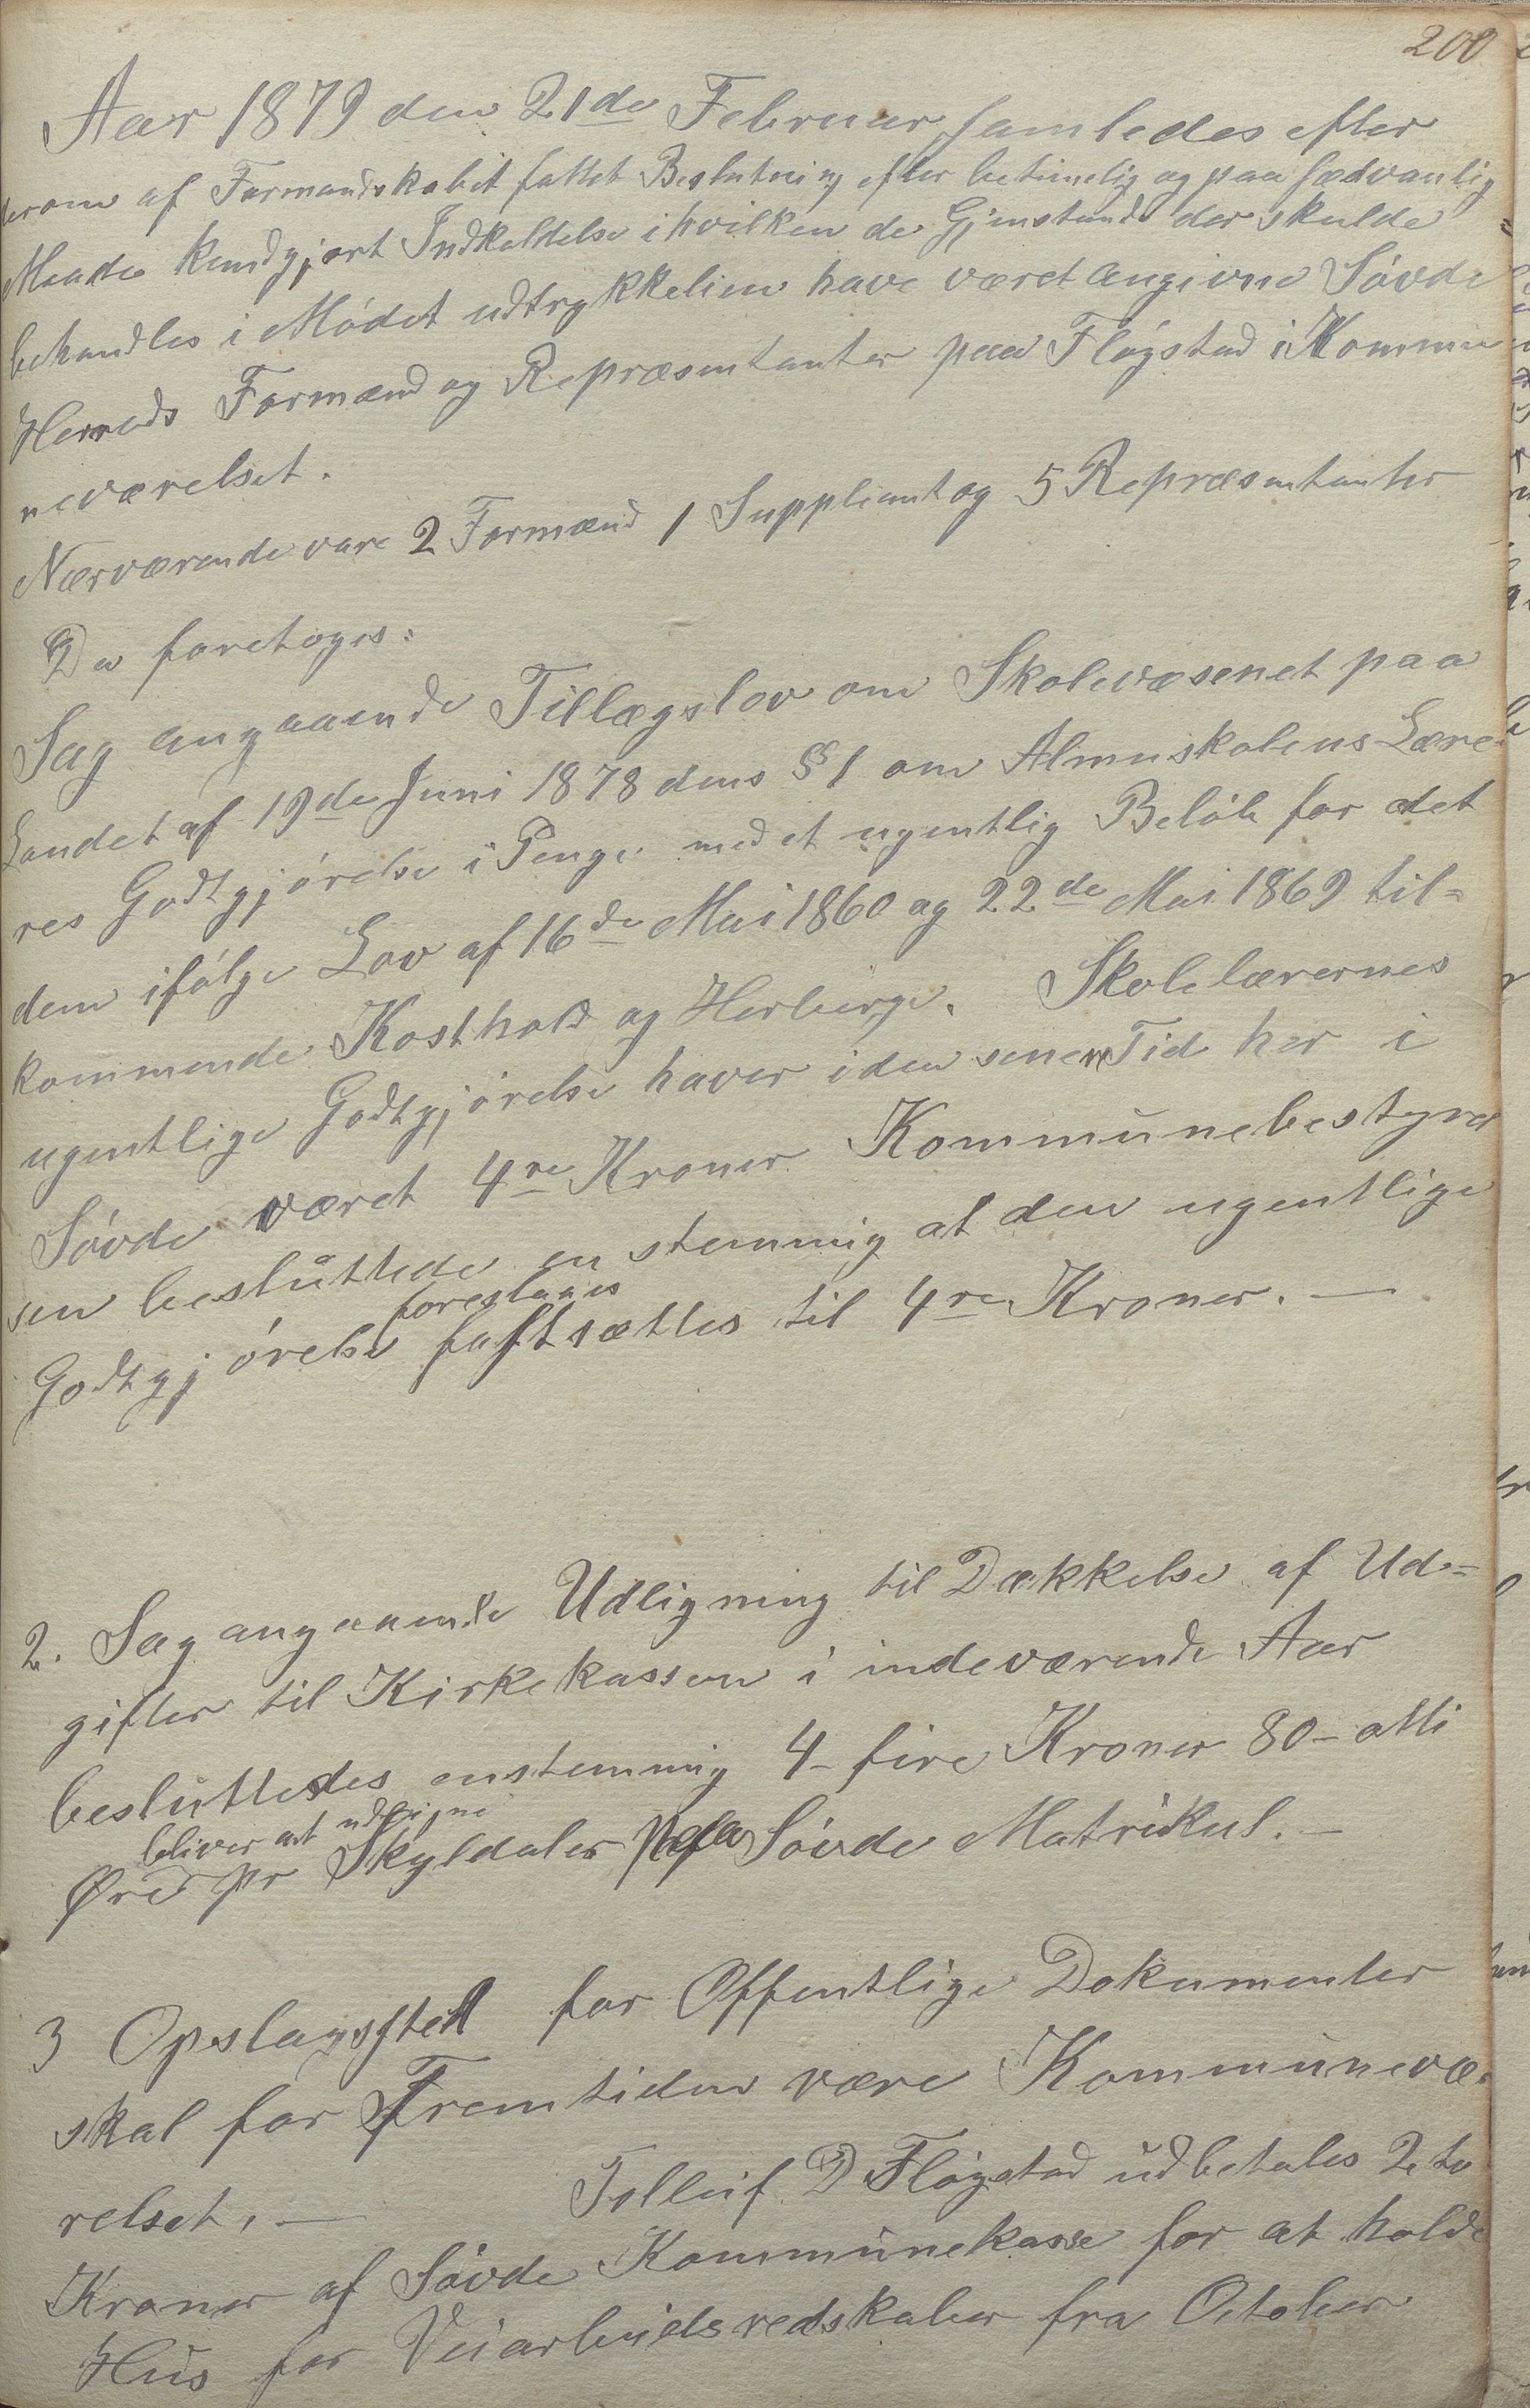 200
Aar 1879 den 21de Februar samledes efter
derom af Formandskabet fattet Beslutning efter betimelig og paa sædvanlig
Maade kundgjort Indkaldelse i hvilken de Gjenstande der skulde
behandles i Mødet udtrykkelien have været angivne Søvde
Herreds Formænd og Repræsentanter paa Fløgstad i Kommu
neværelset.
Nærværende vare 2 Formænd 1 Suppleant og 5 Repræsentanter
Da foretoges:
Sag angaaende Tillægslov om Skolevæsenet paa
Landet af 19de Juni 1878 dens § 1 om Almuskolens Lære
res Godtgjørelse i Penge med et ugentlig Beløb for det
dem ifølge Lov af 16de Mai 1860 og 22de Mai 1869 til=
kommende Kosthold og Herberge. Skolelærernes
ugentlige Godtgjørelse haver i den senere Tid her i
Søvde været 4re Kroner Kommunebestyrel
sen besluttede en stemmig at den ugentlige
foreslaaes
Godtgjørelse fastsættes til 4re Kroner. —
2. Sag angaaende Udligning til Dækkelse af Ud=
gifter til Kirkekassen i indeværende Aar
besluttedes enstemmig 4 - fire Kroner 80 - atti
bliver at udligne
Øre pr Skyldaler paa Søvde Matrikul. —
3 Opslagssted for Offentlige Dokumenter
skal for Fremtiden være Kommunevæ-
relset. —
Tolleif D Fløgstad udbetales 2 to
Kroner af Søvde Kommunekasse for at holde
Hus for Veiarbeidsredskaber fra October